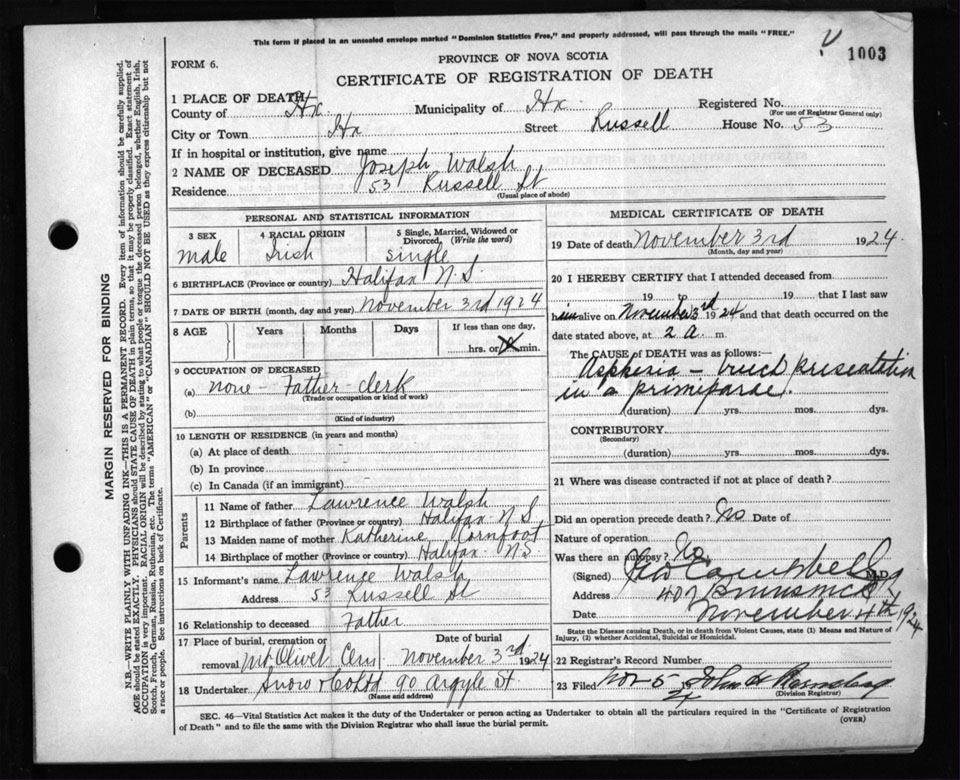 This form if placed in an unsealed envelope marked "Dominion Statistics Free," and properly addressed, will pass through the mails "FREE."
1003
FORM 6.
PROVINCE OF NOVA SCOTIA
CERTIFICATE OF REGISTRATION OF DEATH
1 PLACE OF DEATH
County of Hx Municipality of Hx. Registered No.
(For use of Registrar General only)
City or Town Hx Street Russell House No. 53
If in hospital or institution, give name
2 NAME OF DECEASED Joseph Walsh
Residence 53 Russell St
(Usual place of abode)
PERSONAL AND STATISTICAL INFORMATION
3 SEX 4 RACIAL ORIGIN 5 Single, Married, Widowed or Divorced, (Write the word)
male Irish single
6 BIRTHPLACE (Province or country) Halifax N.S.
7 DATE OF BIRTH (month, day and year) November 3rd 1924
8 AGE Years Months Days If less than one day,
hrs. or min.
9 OCCUPATION OF DECEASED
(a) none - Father - clerk
(Trade or occupation or kind of work)
(b)
(Kind of industry)
10 LENGTH OF RESIDENCE (in years and months)
(a) At place of death
(b) In province
(c) In Canada (if an immigrant)
Parents
11 Name of father Lawrence Walsh
12 Birthplace of father (Province or country) Halifax N S
13 Maiden name of mother Katherine Cornfoot
14 Birthplace of mother (Province or country) Halifax N.S.
15 Informant's name Lawrence Walsh
Address 53 Russell St
16 Relationship to deceased Father
17 Place of burial, cremation or Date of burial
removal Mt Olivet Cem November 3rd 1924
18 Undertaker Snow & Co Ltd 90 Argyle St
(Name and address)
MEDICAL CERTIFICATE OF DEATH
19 Date of death November 3rd 1924.
(Month, day and year)
20 I HEREBY CERTIFY that I attended deceased from
19 19 that I last saw
him alive on November 3rd 1924 and that death occurred on the
date stated above, at 2 a. m.
The CAUSE of DEATH was as follows:
Asphexia - breech presentation
in a primiparae.
(duration) yrs. mos. dys.
CONTRIBUTORY
(Secondary)
(duration) yrs. mos. dys.
21 Where was disease contracted if not at place of death?
Did an operation precede death? No Date of
Nature of operation
Was there an autopsy? No
(Signed) Campbell M.D.
Address 407 Brunswick
Date November 4th 1924
State the Disease causing Death, or in death from Violent Causes, state (1) Means and Nature of
Injury, (2) whether Accidental, Suicidal or Homicidal.
22 Registrar's Record Number
23 Filed Nov 5 John H
(Division Registrar)
SEC. 46—Vital Statistics Act makes it the duty of the Undertaker or person acting as Undertaker to obtain all the particulars required in the "Certificate of Registration
of Death" and to file the same with the Division Registrar who shall issue the burial permit. (OVER)
MARGIN RESERVED FOR BINDING
N.B.—WRITE PLAINLY WITH UNFADING INK—THIS IS A PERMANENT RECORD. Every item of information should be carefully supplied.
AGE should be stated EXACTLY. PHYSICIANS should STATE CAUSE OF DEATH in plain terms, so that it may be properly classified. Exact statement of
OCCUPATION is very important. RACIAL ORIGIN will be described by stating to what people or tongue the deceased person belonged, whether English, Irish,
Scotch, French, German, Russian, Ruthenian, etc. The terms "AMERICAN" or "CANADIAN" SHOULD NOT BE USED as they express citizenship but not
a race or people. See instructions on back of Certificate.